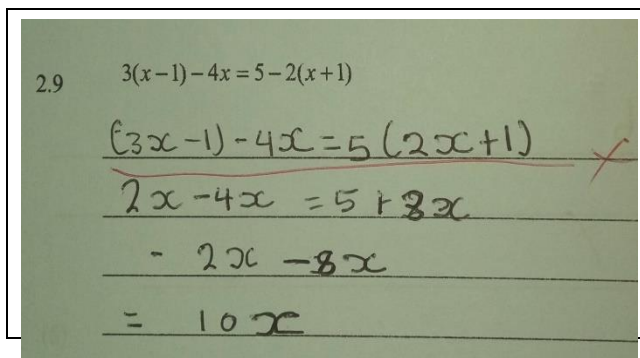 2.9 3(x−1)−4x=5−2(x+1)
(3x-1)-4x=5(2x+1)
2x-4x=5+3x
- 2x-8x
= 10x